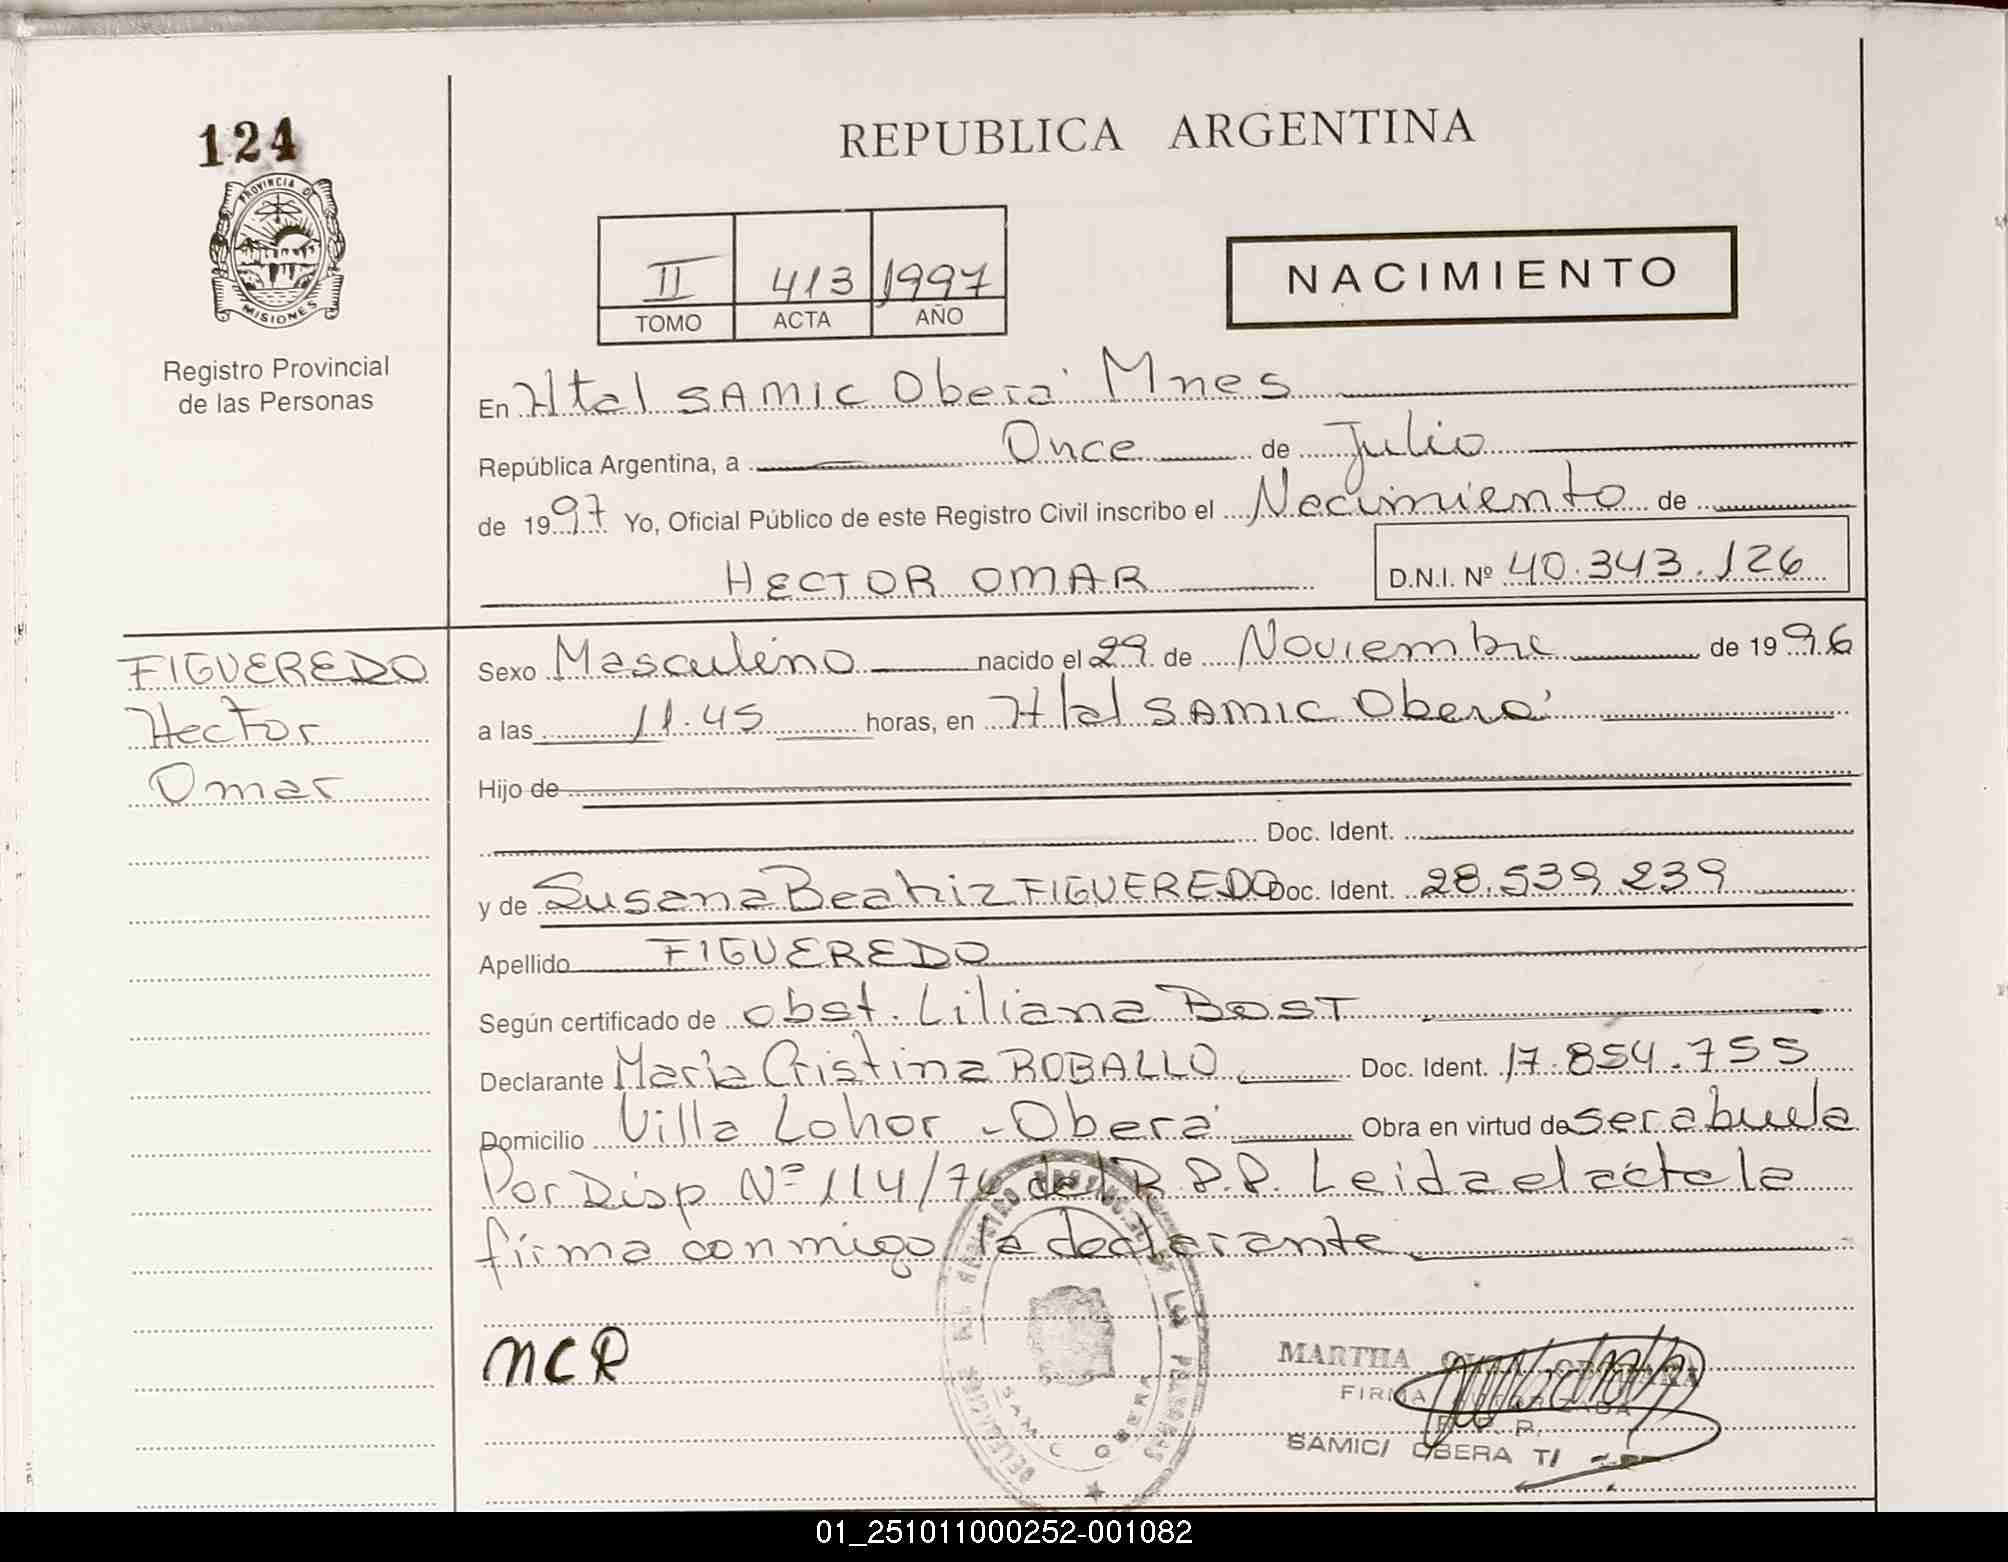 124
PROVINCIA DE
MISIONES
Registro Provincial
de las Personas
REPUBLICA ARGENTINA
II 413 1997
TOMO ACTA AÑO
NACIMIENTO
En Htal SAMIC Oberá Mnes
República Argentina, a Once de Julio
de 1997 Yo, Oficial Público de este Registro Civil inscribo el Nacimiento de
HECTOR OMAR D.N.I. Nº 40.343.126
FIGUEREDO
Hector
Omar
Sexo Masculino nacido el 29 de Noviembre de 1996
a las 11.45 horas, en Htal SAMIC Oberá
Hijo de
Doc. Ident.
y de Susana Beatriz FIGUEREDO Doc. Ident. 28.539 239
Apellido FIGUEREDO
Según certificado de obst. Liliana BOST
Declarante María Cristina ROBALLO Doc. Ident. 17.854.755
Domicilio Villa Lohor - Oberá Obra en virtud de ser abuela
Por Disp Nº 114/74 del R.P.P. Leida el acta la
firma conmigo la declarante
MCR
MARTHA
FIRMA
SAMIC/ OBERA T/
01_251011000252-001082